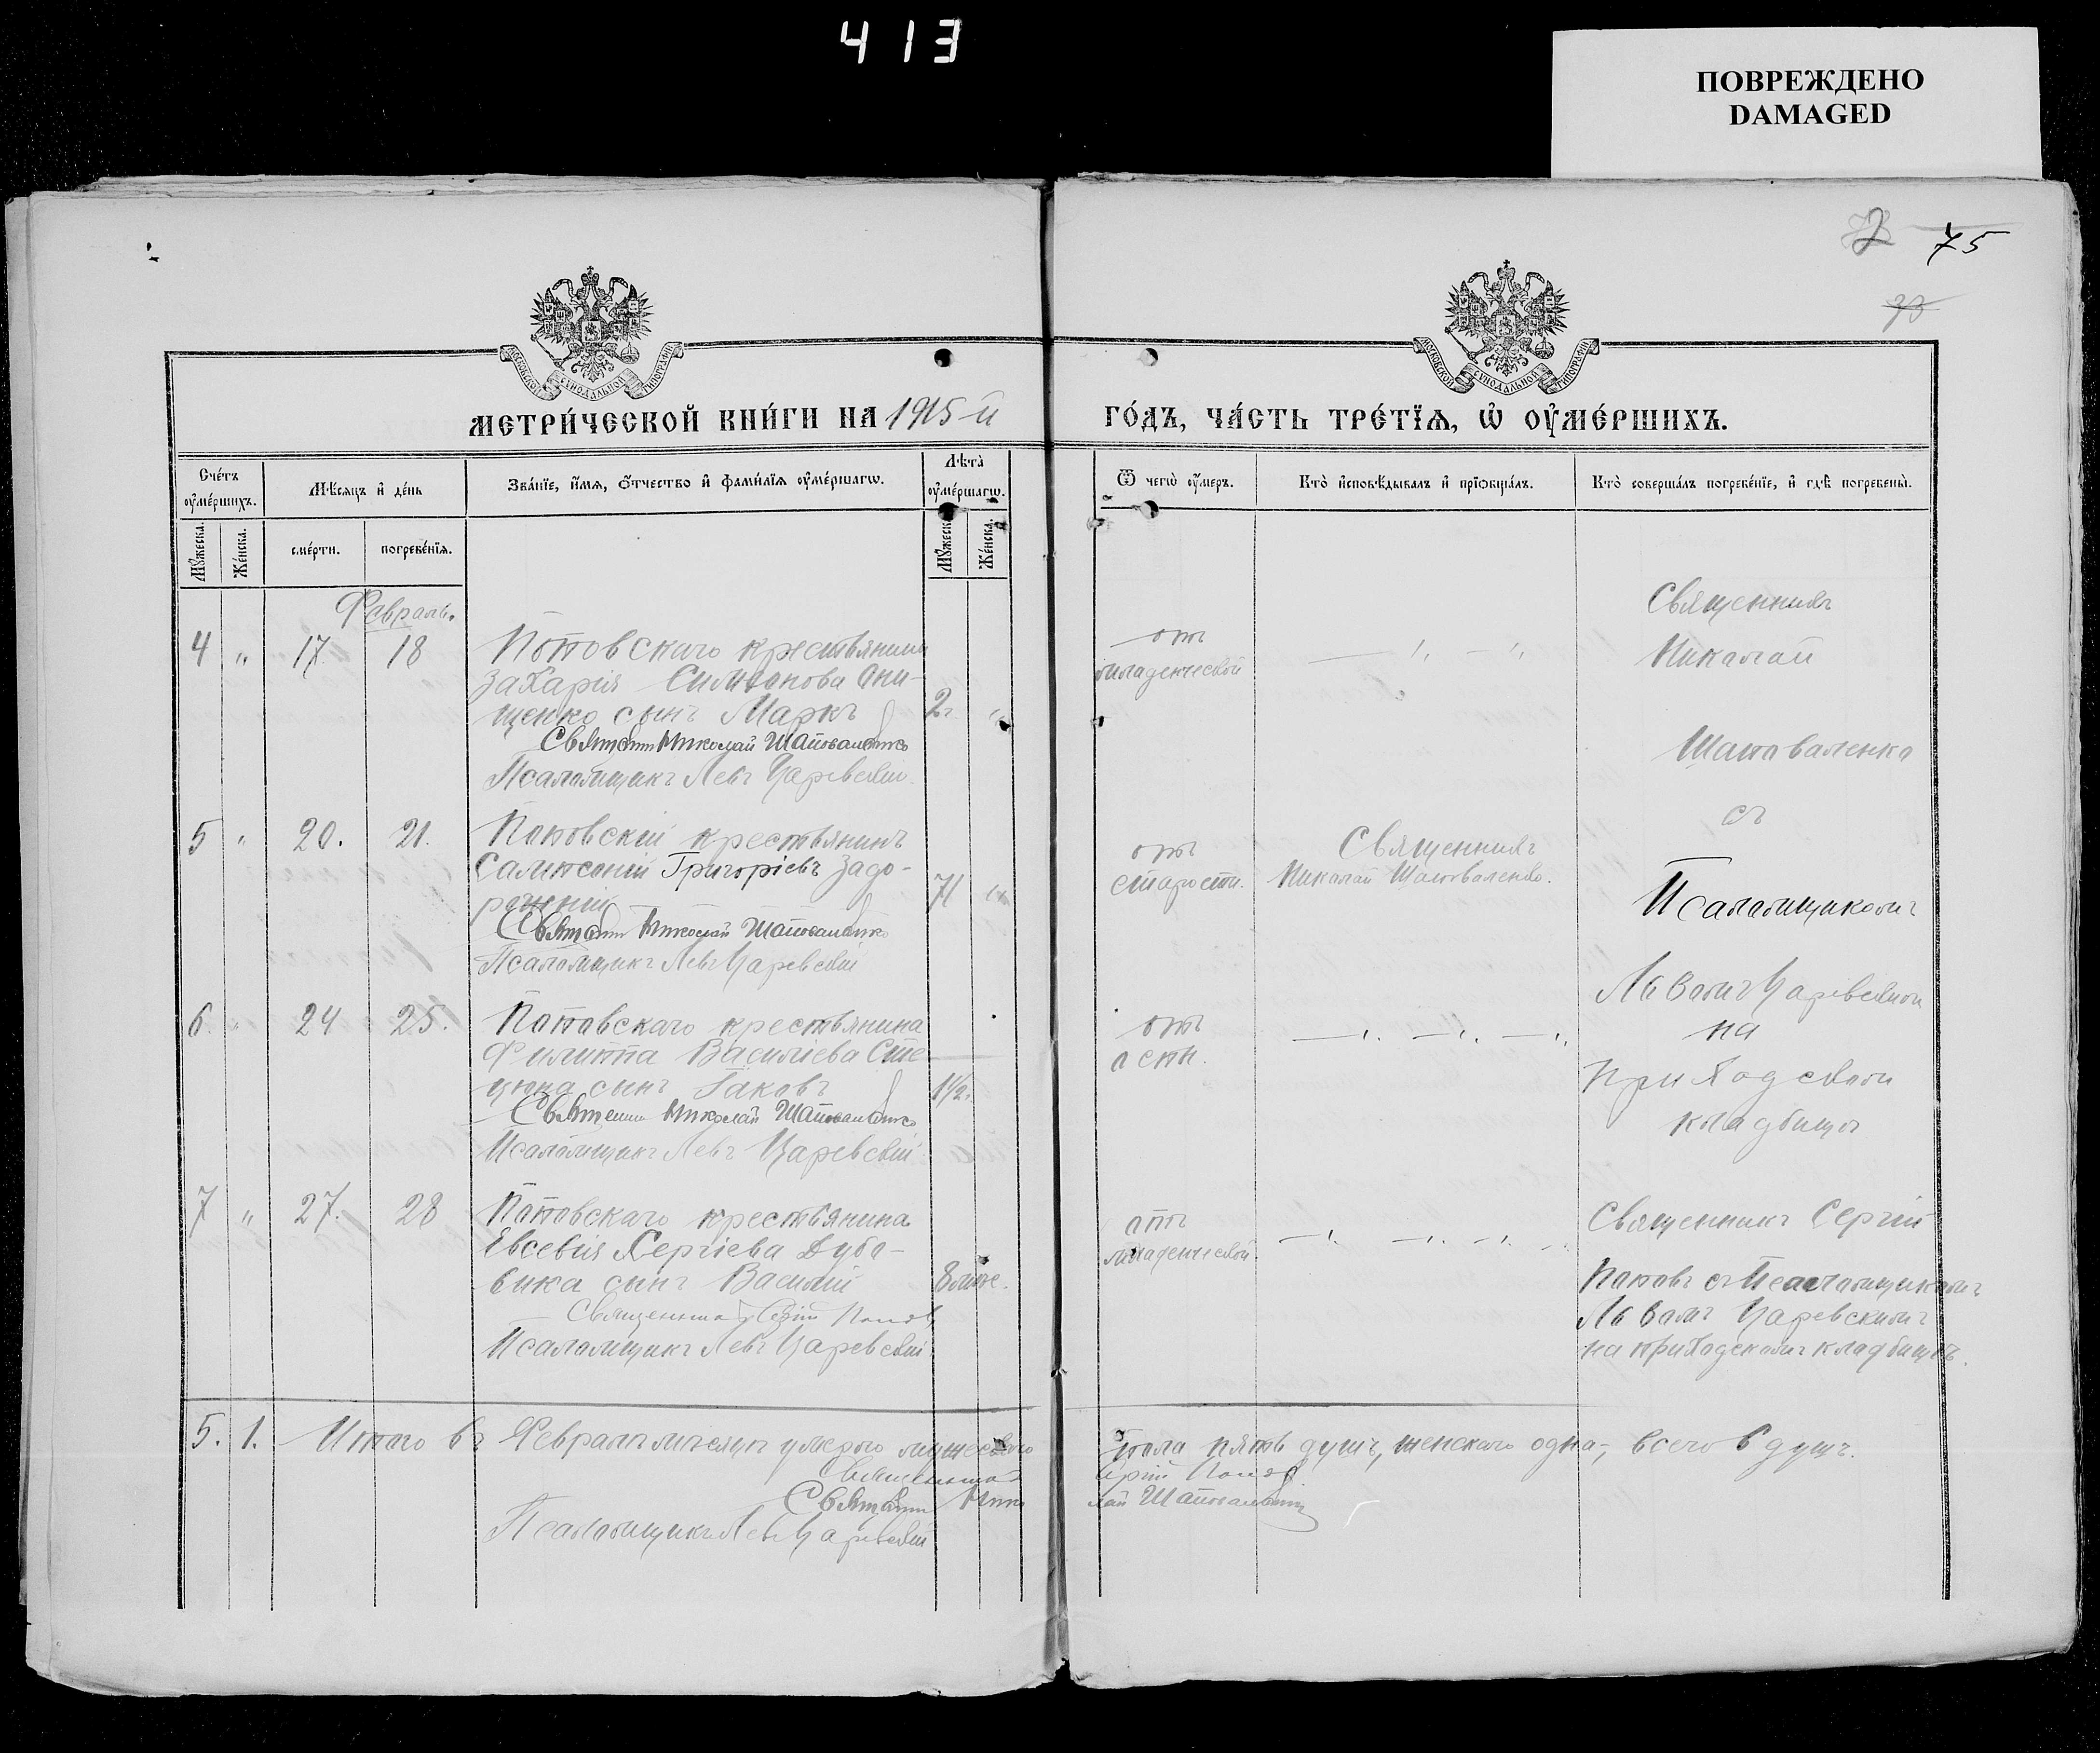 413
ПОВРЕЖДЕНО
DAMAGED
75
МОСКОВСКОЙ СѴНОДАЛЬНОЙ ТИПОГРАФІИ
МОСКОВСКОЙ СѴНОДАЛЬНОЙ ТИПОГРАФІИ
МЕТРИ́ЧЕСКОЙ КНИ́ГИ НА 1915-й
ГО́ДЪ, ЧА́СТЬ ТРЕ́ТЇѦ, Ѡ҆ ОУ҆МЕ́РШИХЪ.
Сче́тъ оу҆ме́ршихъ.
Мѣ́сѧцъ и҆ де́нь
Зва́нїе, и҆́мѧ, ѻ҆́тчество и҆ фамн́лїѧ оу҆ме́ршагѡ.
Лѣ́та оу҆ме́ршагѡ.
Ѿ чегѡ̀ оу҆́меръ.
Кто̀ и҆сповѣ́дывалъ и҆ прїѡбща́лъ.
Кто̀ соверша́лъ погребе́нїе, и҆ гдѣ̀ погребены̀.
Мꙋ́жеска.
Же́нска.
сме́рти.
погребе́нїѧ.
Мꙋ́жеска.
Же́нска.
Февраль.
4 " 17. 18
Поповскаго крестьянина
Захарія Симонова Они-
щенко сынъ Маркъ 2 г. "
Священ Николай Шаповаленко
Псаломщикъ Левъ Царевскій.
отъ
младенческой
— " — "
Священникъ
Николай
Шаповаленко
съ
5 " 20. 21.
Поповскій крестьянинъ
Сампсоній Григоріевъ Задо-
рожній 71 "
Священ Николай Шаповаленко
Псаломщикъ Левъ Царевскій
отъ
старости.
Священникъ
Николай Шаповаленко.
Псаломщикомъ
Львомъ Царевскимъ
на
приходскомъ
кладбищѣ
6. " 24 25.
Поповскаго крестьянина
Филиппа Василіева Сте
цюка сынъ Іаковъ 1½
Священ Николай Шаповаленко
Псаломщикъ Левъ Царевскій
отъ
оспы.
— " — " — "
7 " 27. 28
Поповскаго крестьянина
Евсевія Сергіева Дубо-
вика сынъ Василій 8 мѣс.
Священникъ Сергій Поповъ
Псаломщикъ Левъ Царевскій
отъ
младенческой.
— " — " — "
Священникъ Сергій
Поповъ съ Псаломщикомъ
Львомъ Царевскимъ
на приходскомъ кладбищѣ.
5. 1. Итого въ Февралѣ мѣсяцѣ умерло мужескаго
пола пять душъ, женскаго одна, всего 6 душъ.
Священникъ Сергій Поповъ
Священ Николай Шаповаленко
Псаломщикъ Левъ Царевскій